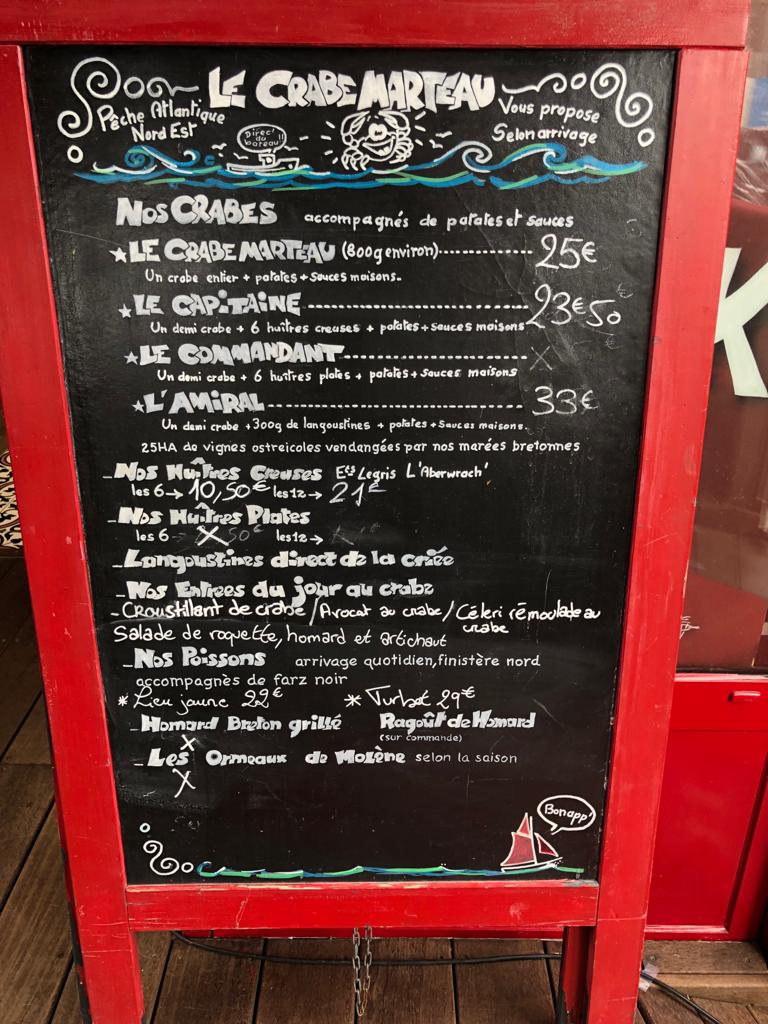 LE CRABE MARTEAU
Pêche Atlantique
Nord Est
Direct
du
bateau!!
Vous propose
Selon arrivage
Nos CRABES accompagnés de patates et sauces
★LE CRABE MARTEAU (800g environ)-------------- 25€
Un crabe entier + patates + sauces maisons.
★LE CAPITAINE------------------------------ 23€50
Un demi crabe + 6 huîtres creuses + patates + sauces maisons
★LE COMMANDANT------------------------ X
Un demi crabe + 6 huîtres plates + patates + sauces maisons
★L'AMIRAL---------------------------------- 33€
Un demi crabe +300g de langoustines + patates + sauces maisons.
25HA de vignes ostreicoles vendangées par nos marées bretonnes
_Nos Huîtres Creuses Ets Legris L'Aberwrach'
les 6→ 10,50€ les 12→ 21€
_Nos Huîtres Plates
les 6→ X les 12→
_Langoustines direct de la criée
_Nos Entrees du jour au crabe
_Croustillant de crabe / Avocat au crabe / Céleri rémoulade au
crabe
Salade de roquette, homard et artichaut
_Nos Poissons arrivage quotidien, finistère nord
accompagnès de farz noir
* Lieu jaune 22€ * Turbot 29€
_Homard Breton grillé Ragoût de Homard
X (sur commande)
_Les Ormeaux de Molène selon la saison
X
Bon app'
K